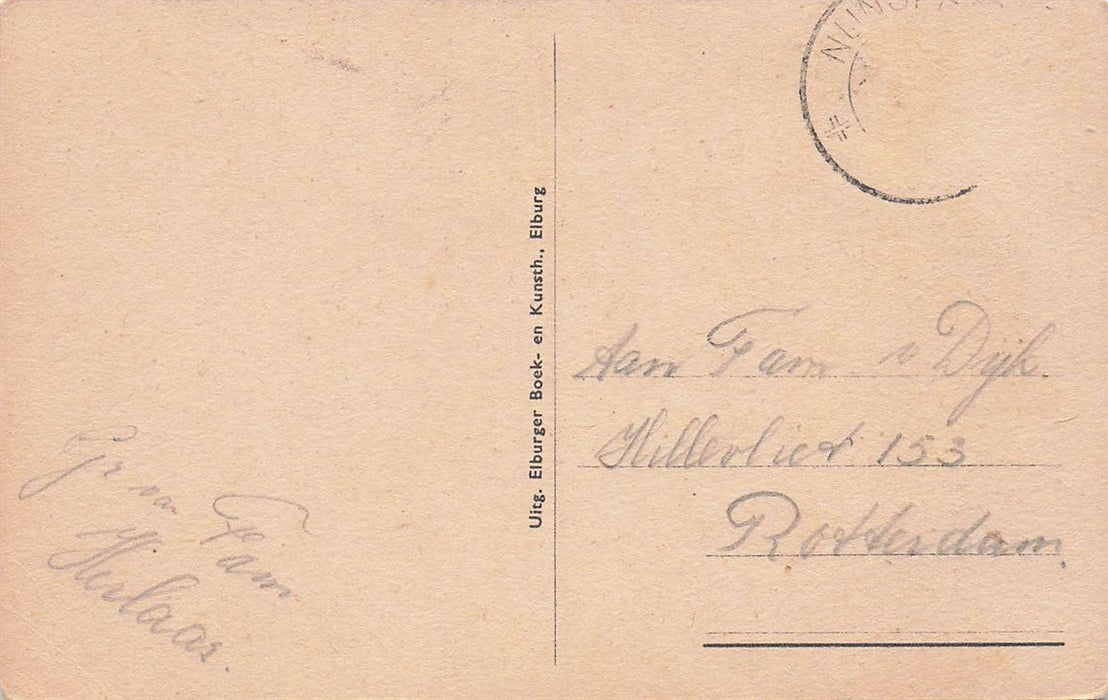 Gr van
Fam
Herlaar.
Uitg. Elburger Boek- en Kunsth., Elburg
Aan Fam v Dijk.
Hillevliet 153
Rotterdam.